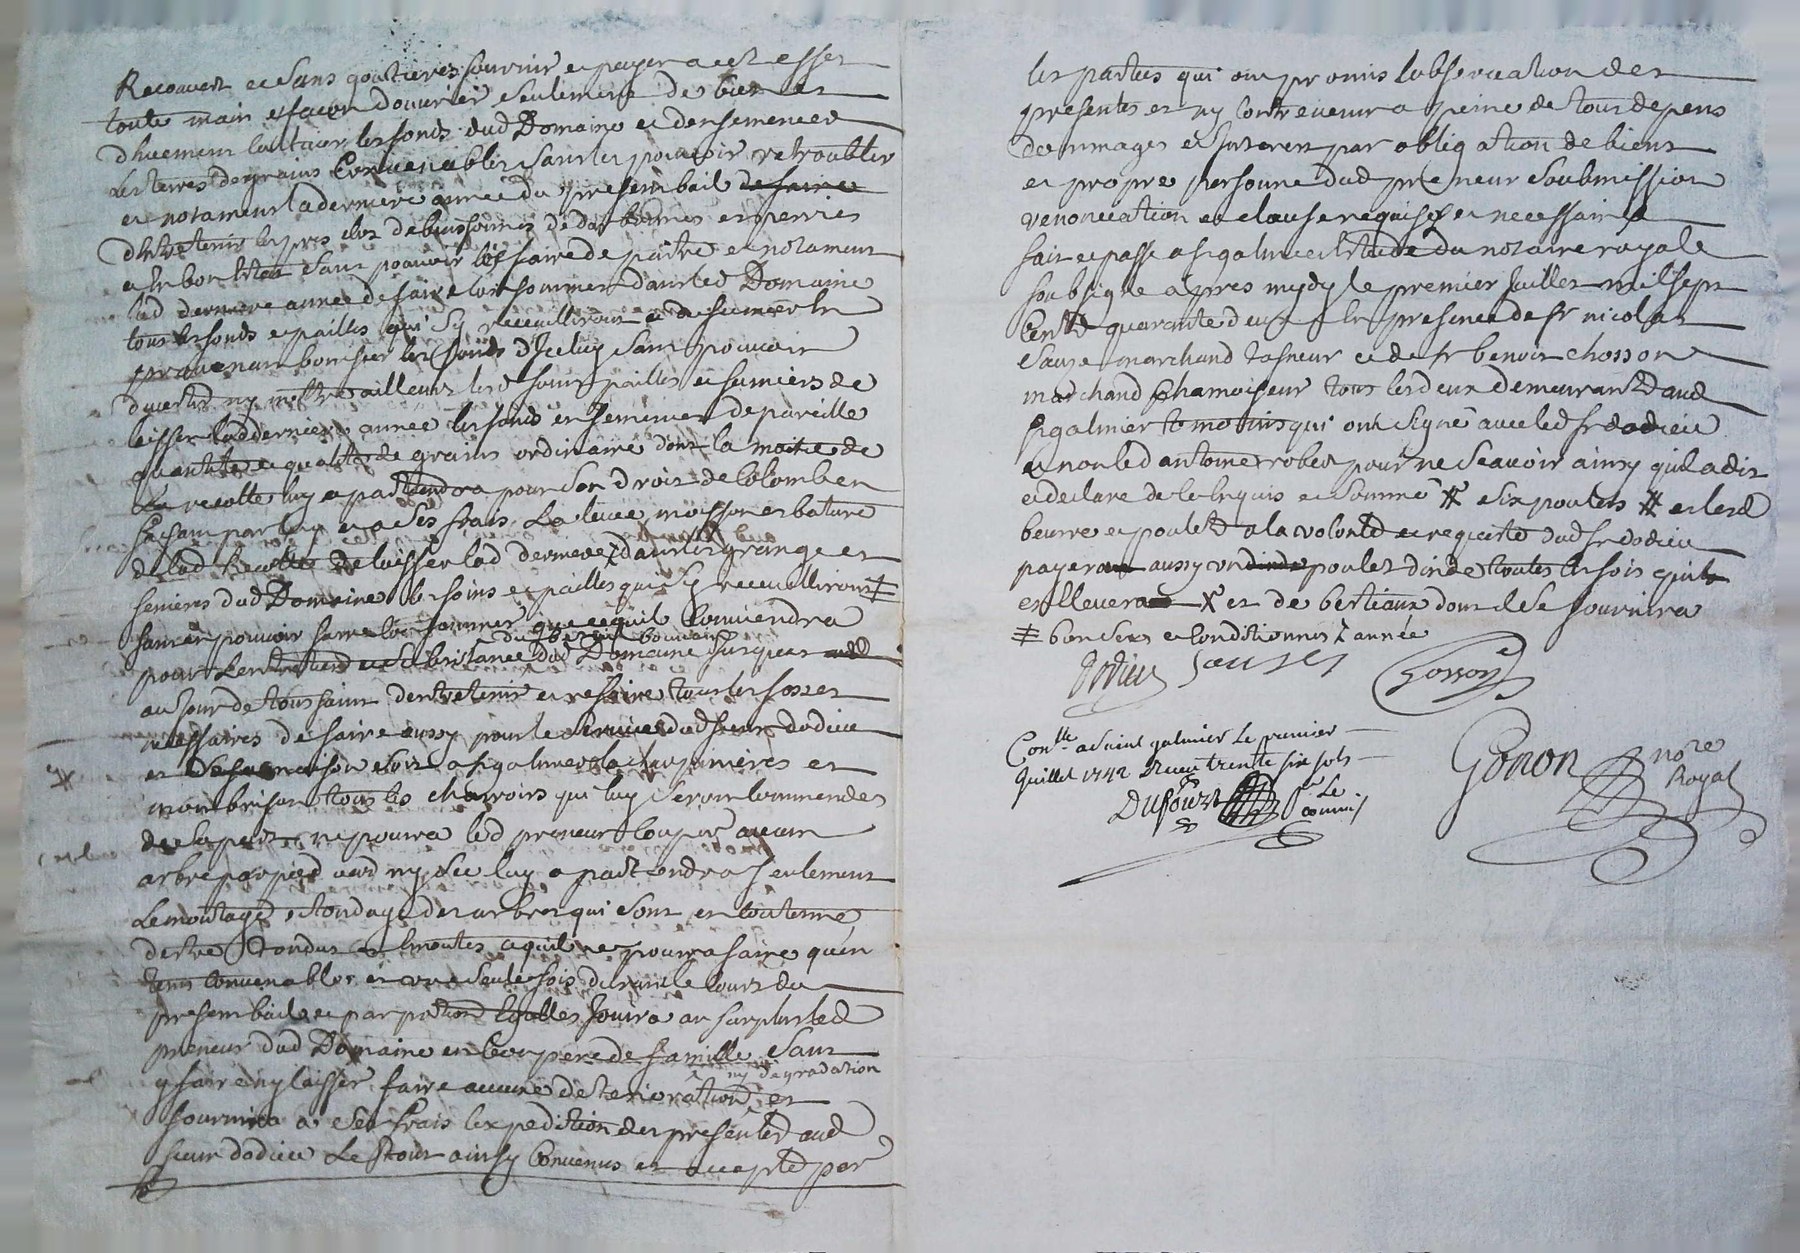 Recouvert et sans goutieres fournir et payer a cet effet
toute main et facon d'ouvrier seulement de bien et
dhuement cultiver les fonds dud Domaine et densemencer
les terres de grains Convenables sans les pouvoir retroubler
et notament la derniere année du present bail de faire
dhentretenir les pres clos de buissonnes et perries
en bon Etat sans pouvoir les faire depaitre et notament
lad derniere année de faire consommer dans led Domaine
tous les foinds et pailles qui sy receuilliront et de fumer en
provenant bonifier les fonds d'Iceluy sans pouvoir
divertir ny mettre ailleurs lesd foins pailles et fumiers de
laisser lad derniere année les fond ensemences de pareille
quantité et qualité de grains ordinaire dont la moitie de
La recolte luy apartiendra pour son droit de Colomben
faisant par luy et a ses frais La levée moisson et bature
de lad Recolte De laisser lad derniere ⁒ dans les granges et
fenieres dud Domaine les foins et pailles qui sy receuilliront ‡
sans en pouvoir faire consommer que ce quil Conviendra
du betail bouvair
pour Lentretient et subsistance dud Domaine jusques
au Jour de toussaint dentretenir et refaire tous les fosses
necessaires de faire aussy pour le service dud sieur dodieu
et de sa maison soit a st galmier la chapinieres et
montbrison tous les charroirs qui luy seront Commendes
de sa part ne poura led preneur Couper aucun
arbre par pied verd ny sec luy apartiendra seulement
Lemontage et tondage des arbres qui sont en coutume
destre tondus et Emontes ce quil ne poura faire quen
tems convenables et une seule fois durant le Cours du
present bail et par portions Egalles Jouira au surplus led
preneur dud Domaine en bon pere de famille sans
y faire ny laisser faire aucune deterioration et
ny degradation
fournira a ses frais lexpedition des presentes aud
sieur dodieu Le tout ainsy Convenus et accepté par
les parties qui ont promis lobservation des
presentes et ny Contrevenir a peine de tous depens
dommages et Interest par obligation de biens
et propre personne dud preneur soubmission
renonciation et clause requises et necessaire
fait et passe a st galmier Etude du notaire royale
soubsigne apres mydy le premier Juillet mil sept
Cent quarante deux En presence de sr nicolas
sauze marchand taneur et de sr benoit chosson
marchand Chamoiseur tous les deux demeurant aud
st galmier temoins qui ont signé avec led sr dodieu
et non led antoine robert pour ne scavoir ainsy quil a dit
et declare de ce Enquis et sommé ※ six poulets ※ et lesd
beurre et poulets a la volonté et requeste dud sr dodieu
payera aussy un poulet dinde toutes les fois quil
en llevera X et de bestiaux dont il se fournira
‡ bon sers et Conditionnes ⁒ année
Dodieu Sauzes Cosson
Conlle a Saint galmier Le premier
Juillet 1742 Receu trente six sols
Dufourst pr Le
commis
Gonon nore
Royal